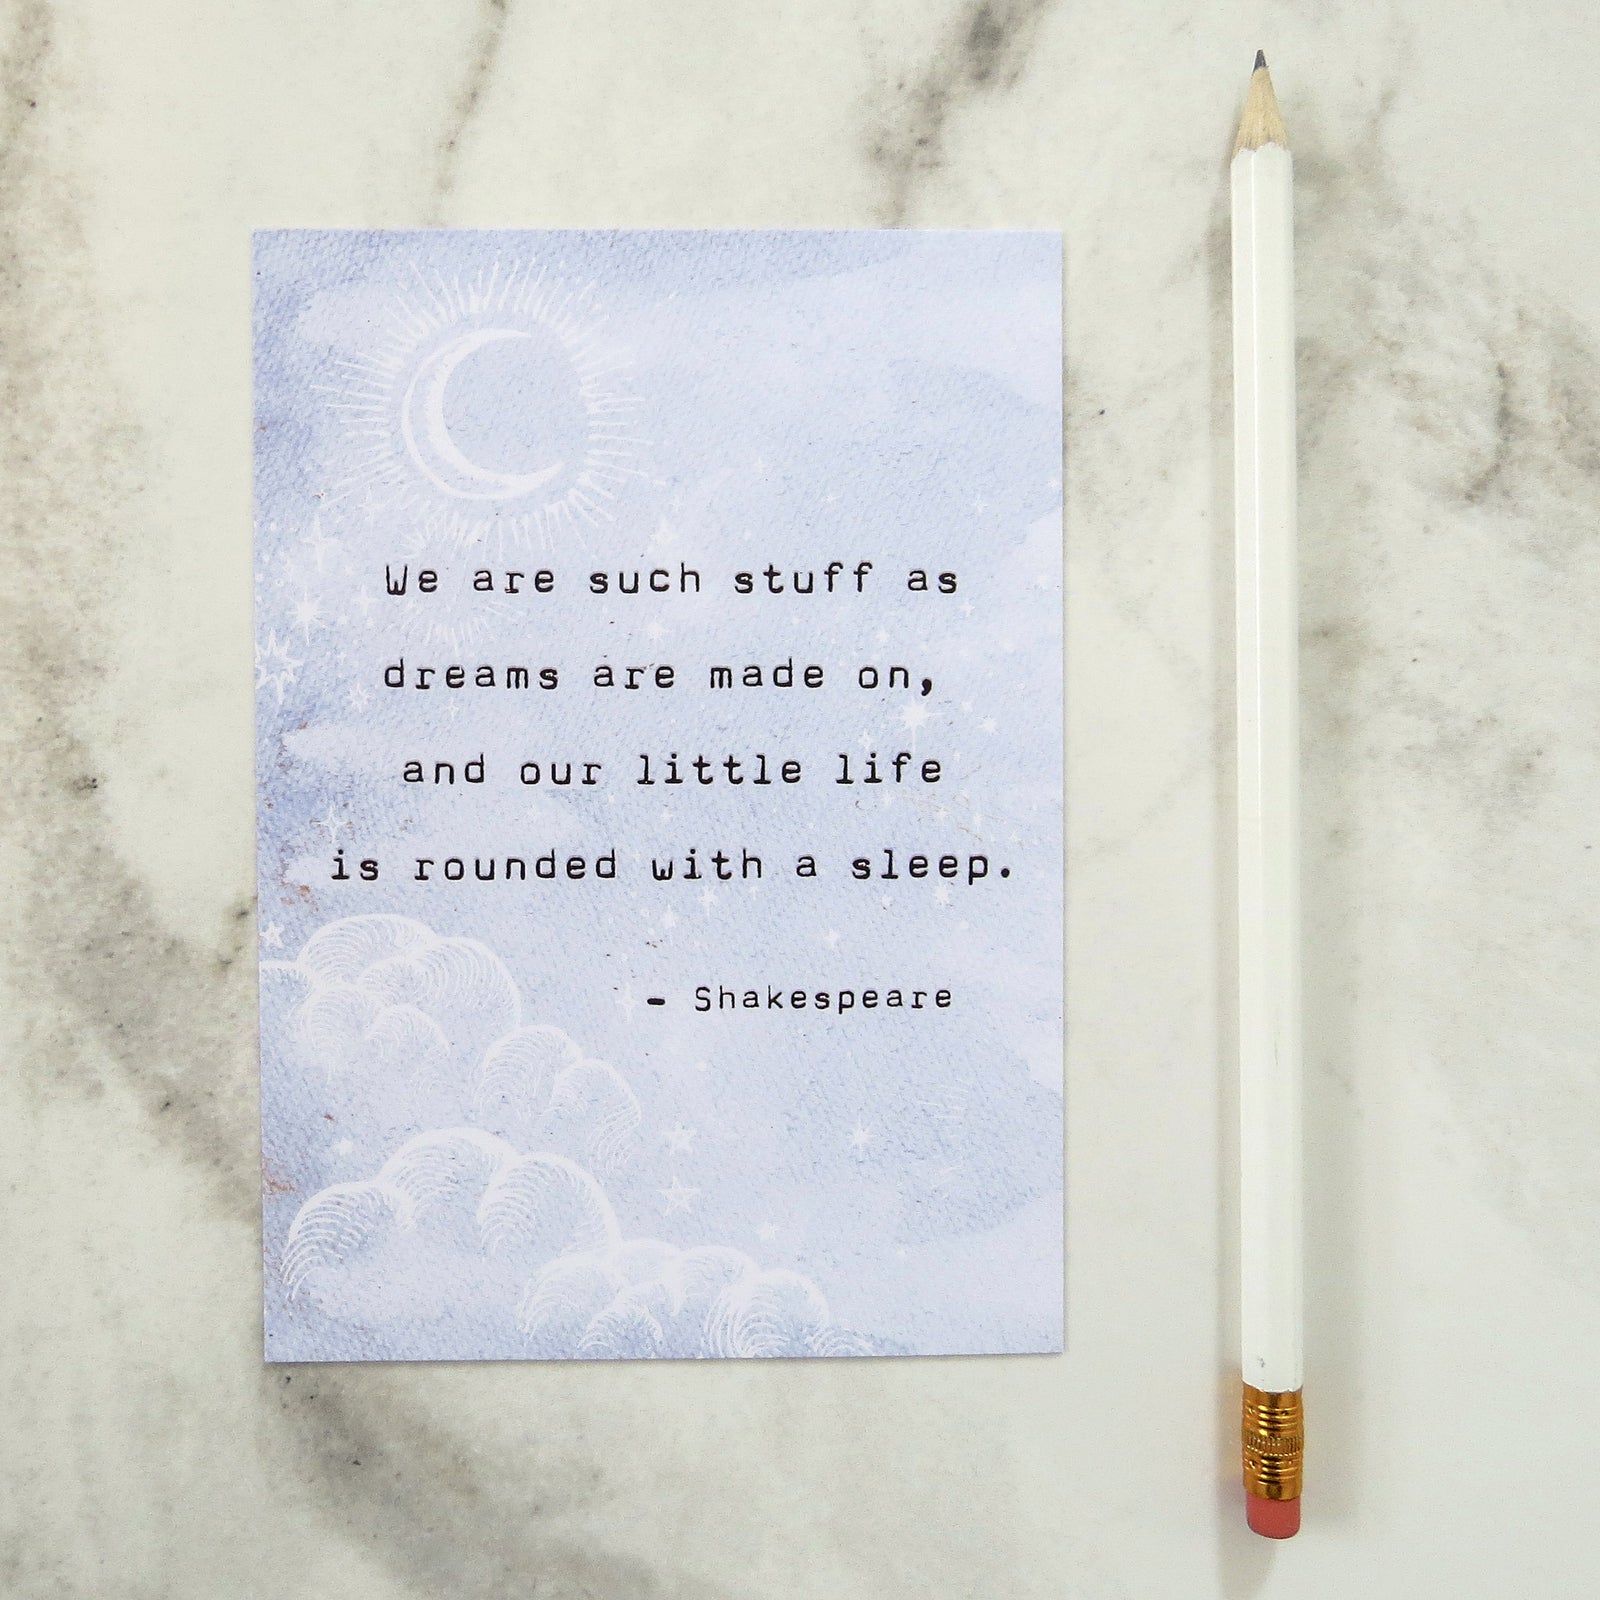 We are such stuff as
dreams are made on,
and our little life
is rounded with a sleep.
- Shakespeare